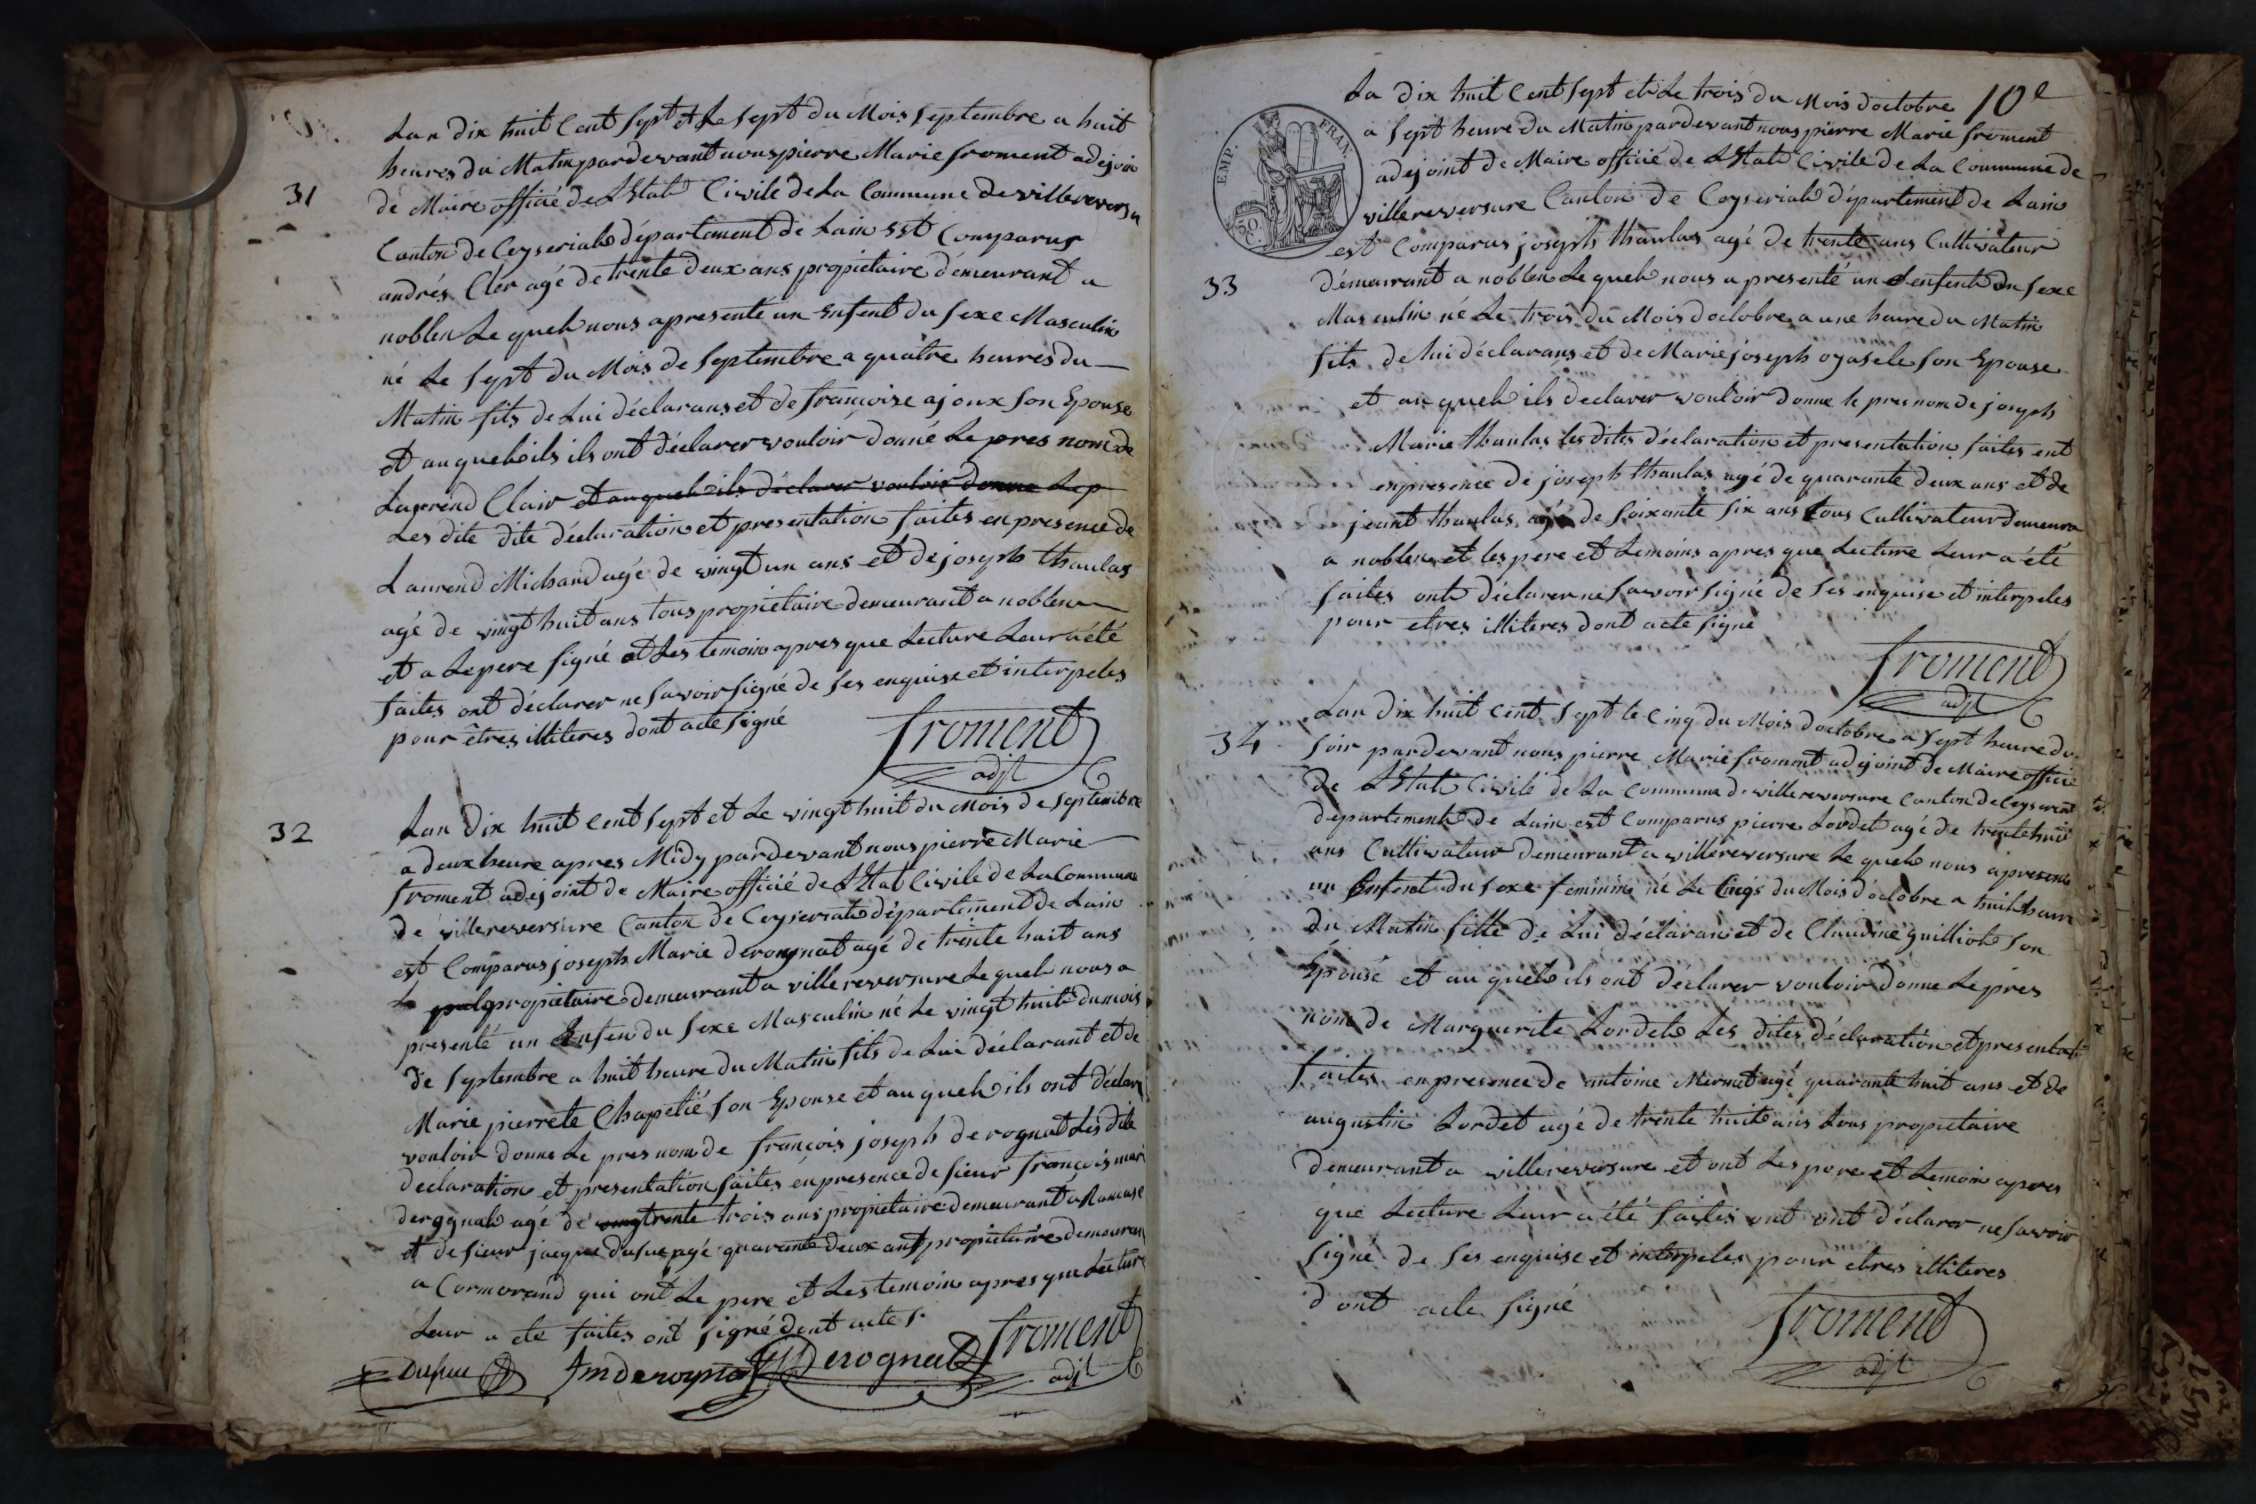 Lan dix huit Cent Sept et Le Sept du Mois Septembre a huit
heures du Matin pardevant nous pierre Marie froment adejoin
31
de Maire officié de LEtat Civile de La Commune de villereversu
Canton de Ceyseriat département de Lain Est Comparus
andrés Cler agé de trente deux ans propietaire démeurant a
noblen Le quel nous a presente un Enfent du Sexe Masculin
né Le Sept du Mois de Septembre a quatre heures du
Matin fils de Lui déclarans et de françoise ajoux Son Epouse
et au quel ils ils ont déclarer vouloir donné Le pres nom de
Laurend Clair et au quel ils déclarer vouloir donne Le p
Les dite dite déclaration et presentation faites en presence de
Laurend Michaud agé de vingt un ans et de joseph thaulas
agé de vingt huit ans tous propietaire demeurant a noblen
et a Le pere Signé et Les temoin apres que Lecture Leur a été
faites ont déclarer ne Savoir Signé de Ses enquise et interpeles
pour êtres illiteres dont acte Signé
froment
adjt
32
Lan Dix huit Cent Sept et Le vingt huit du Mois de Septembre
a deux heure apres Midy pardevant nous pierre Marie
froment adejoint de Maire officié de LEtat Civile de La Commune
de villereversure Canton de Ceyseriat département de Lain
est Comparus joseph Marie derognat agé de trente huit ans
propietaire demeurant a villereversure Le quel nous a
presenté un Enfen du Sexe Masculin né Le vingt huit du mois
de Septembre a huit heure du Matin fils de Lui déclarant et de
Marie pierrete Chapelié Son Epouse et au quel ils ont déclare
vouloir donne Le pres nom de françois joseph derognat Les dite
declaration et presentation faites en presence de Sieur françois mari
derognat agé de trente trois ans propietaire demeurant a Ramase
et de Sieur jacque dufue agé quarante deux ans propietaire demeuran
a Cormorand qui ont Le pere et Les temoin apres que Lecture
Leur a ete faites ont Signé dont acte S.
Dufue
fm derognat
JM Derognat
froment
adjt
10e
La dix huit Cent Sept et Le trois du Mois doctobre
a Sept heure du Matin pardevant nous pierre Marie froment
EMP. FRAN.
adejoint de Maire officié de LEtat Civile de La Commune de
villereversure Canton de Ceyseriat département de Lain
est Comparus joseph thaulas agé de trente ans Cultivateur
33
démeurant a noblen Le quel nous a presenté un enfent du Sexe
Masculin né Le trois du Mois doctobre a une heure du Matin
fils de lui déclarans et de Marie joseph oyasele Son Epouse
et au quel ils declarer vouloir donne le pres nom de joseph
Marie thaulas les dites déclaration et presentation faites ent
en presence de joseph thaulas agé de quarante deux ans et de
jeant thaulas agé de Soixante Six ans tous Cultivateur demeura
a noblen et les pere et temoins apres que Lecture Leur a été
faites ont déclarer ne Savoir Signé de Ses enquise et interpeles
pour etres illiteres dont acte Signe
froment
adjt
34
Lan Dix huit Cent Sept le Cinq du Mois doctobre a Sept heure du
Soir pardevant nous pierre Marie froment adejoint de Maire officié
de LEtat Civile de La Commune de villereversure Canton de Ceyseriat
departement de Lain est Comparus pierre Lordet agé de trente huit
ans Cultivateur demeurant a villereversure Le quel nous a presente
un Enfent du Sexe feminin né Le Cinqs du Mois doctobre a huit heure
du Matin fille de Lui déclaran et de Claudine guilliot Son
Epouse et au quel ils ont déclarer vouloir donne Le pres
nom de Marguerite Lordet Les dites déclaration et presentati
faites en presence de antoine Mermet agé quarante huit ans et de
augustin Lordet agé de trente huit ans tous propietaire
demeurant a villereversure et ont Les pere et temoin apres
que Lecture Leur a été faites ont ont déclarer ne Savoir
Signé de Ses enquise et interpeles pour etres illiteres
dont acte Signé
froment
adjt